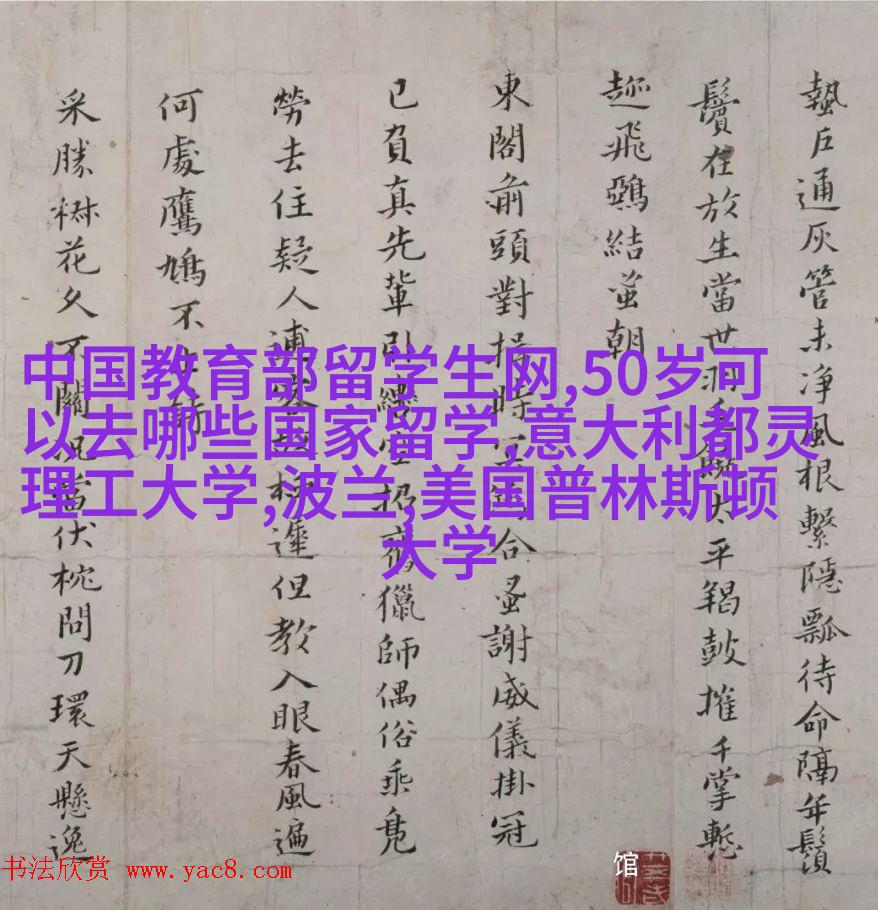 蟄户通灰管未净風根繫隱瓢待命隔年鬚
鬢在放生當世太平羯鼓摧千掌慙
趂飛鵶結蚤朝
東閣前頭對揖時合蚤謝威儀掛冠
已負真先輩引招獵師偶俗乘鳧
勞去住疑人遲但教入眼春風遍
何處鷹鳩不
采勝花久不關伏枕問刀環天懸逸
中国教育部留学生网,50岁可
以去哪些国家留学,意大利都灵
理工大学,波兰,美国普林斯顿
大学
馆
书法欣赏 www.yac8.com